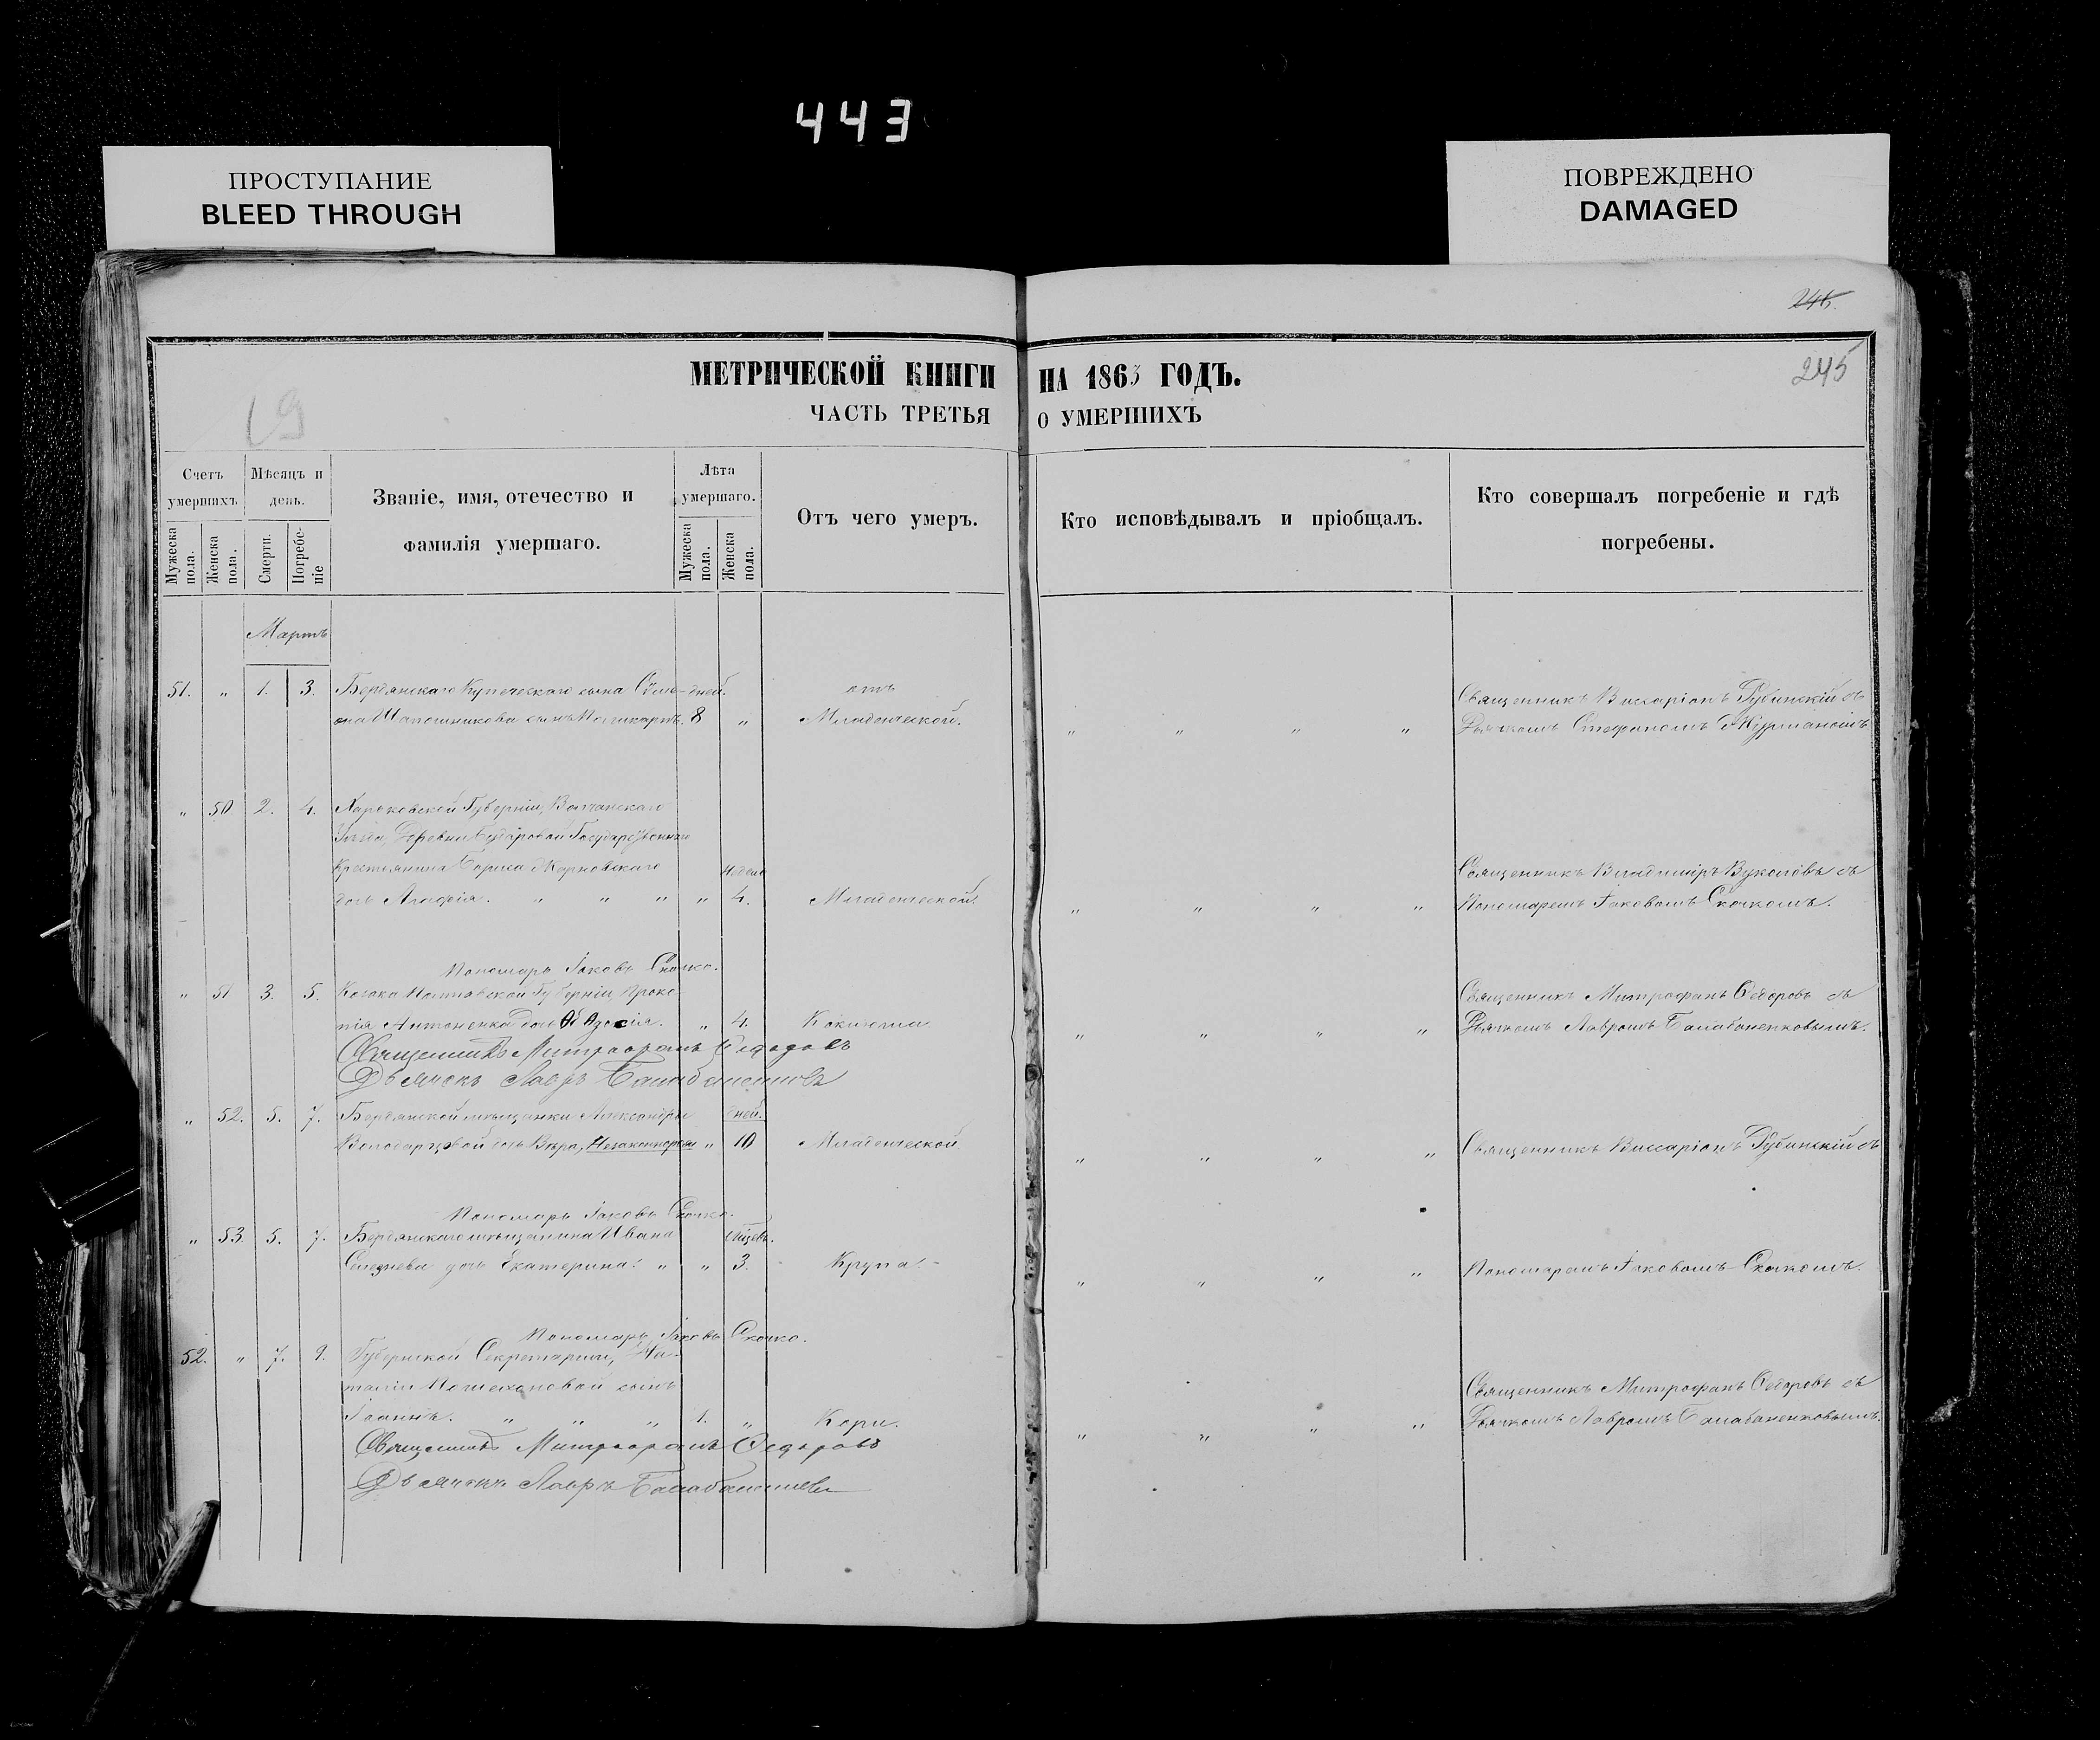 443
ПРОСТУПАНИЕ
BLEED THROUGH
ПОВРЕЖДЕНО
DAMAGED
246.
245
19
МЕТРИЧЕСКОЙ КНИГИ НА 1863 ГОДЪ.
ЧАСТЬ ТРЕТЬЯ О УМЕРШИХЪ
Счетъ умершихъ.
Мужеска пола.
Женска пола.
Мѣсяцъ и день.
Смерти.
Погребеніе
Званіе, имя, отечество и фамилія умершаго.
Лѣта умершаго.
Мужеска пола.
Женска пола.
Отъ чего умеръ.
Кто исповѣдывалъ и пріобщалъ.
Кто совершалъ погребеніе и гдѣ погребены.
Мартъ
51. „ 1. 3. Бердянскаго Купеческаго сына Симе- дней. отъ Священникъ Виссаріонъ Губинскій съ
она Шапошникова сынъ Поликарпъ. 8 „ Младенческой. „ „ „ „ Дьячкомъ Стефаномъ
„ 50 2. 4. Харьковской Губерніи, Волчанскаго
Уѣзда, Деревни Государственнаго
Крестьянина Бориса недель Священникъ Владиміръ Вуколовъ съ
дочь Агафія. „ „ „ „ 4. Младенческой. „ „ „ „ Пономаремъ Іаковомъ Скочкомъ.
Пономарь Іаковъ Скочко.
„ 51 3. 5. Козака Полтавской Губерніи, Проко- Священникъ Митрофанъ Ѳедоровъ съ
пія Антоненка дочь „ 4. Коклюша „ „ „ „ Дьячкомъ Лавромъ Балабаненковымъ.
Священникъ Митрофанъ Ѳедоровъ
Дьячекъ Лавръ Балабаненковъ
„ 52. 5. 7. Бердянской мѣщанки Александры дней.
дочь Вѣра, Незаконнорожд „ 10 Младенческой „ „ „ „ Священникъ Виссаріонъ Губинскій съ
Пономарь Іаковъ Скочко.
„ 53. 5. 7. Бердянскаго мѣщанина Ивана мѣсяцев.
Селезнева дочь Екатерина. „ „ 3. Крупа. „ „ „ „ Пономаремъ Іаковомъ Скочкомъ.
Пономарь Іаковъ Скочко.
52. „ 7. 9. Губернской Секретарши, На-
таліи сынъ Священникъ Митрофанъ Ѳедоровъ съ
Іоаннъ. „ „ „ 1. „ Кори. „ „ „ „ Дьячкомъ Лавромъ Балабаненковымъ.
Священникъ Митрофанъ Ѳедоровъ
Дьячекъ Лавръ Балабаненковъ